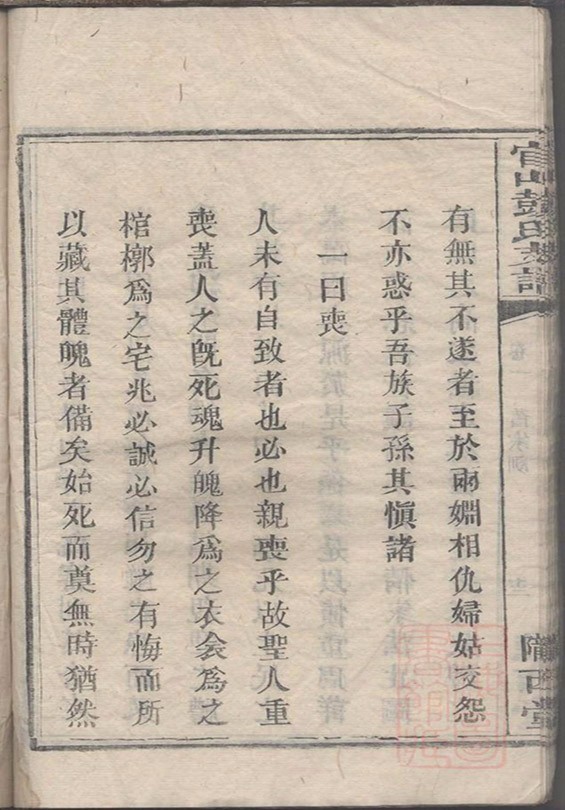 官山彭氏族譜
卷
隴西堂
有無其不遂者至於兩姻相仇婦姑交怨
不亦惑乎吾族子孫其愼諸
一曰喪
人未有自致者也必也親喪乎故聖人重
喪蓋人之旣死魂升魄降爲之衣衾爲之
棺槨爲之宅兆必誠必信勿之有悔而所
以藏其體魄者備矣始死而奠無時猶然